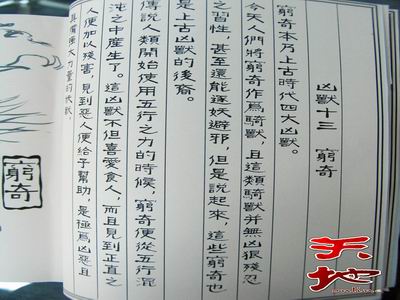 凶獸十三 窮奇
窮奇本乃上古時代四大凶獸。
今天人們將窮奇作爲騎獸，且這類騎獸並無凶狠殘忍
之習性，甚至還能逐妖避邪，但是說起來，這些窮奇也
是上古凶獸的後裔。
傳說人類開始使用五行之力的時候，窮奇便從五行混
沌之中產生了。這凶獸不但喜愛食人，而且見到正直之
人便加以殘害，見到惡人便給予幫助，是極爲凶惡且
具有強大力量的凶獸
窮奇
天地